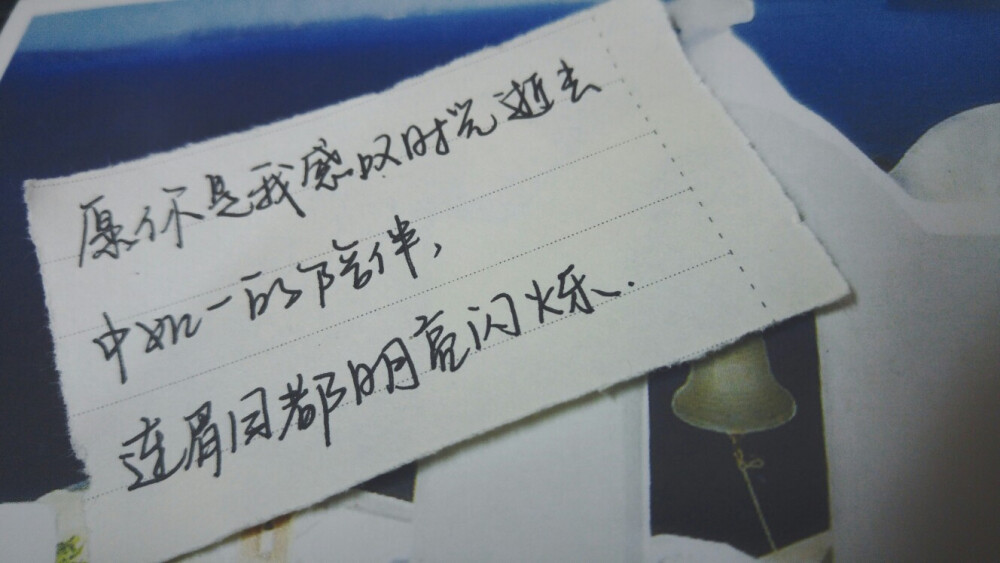 愿你是我感叹时光逝去
中如一的陪伴,
连眉目都明亮闪烁.